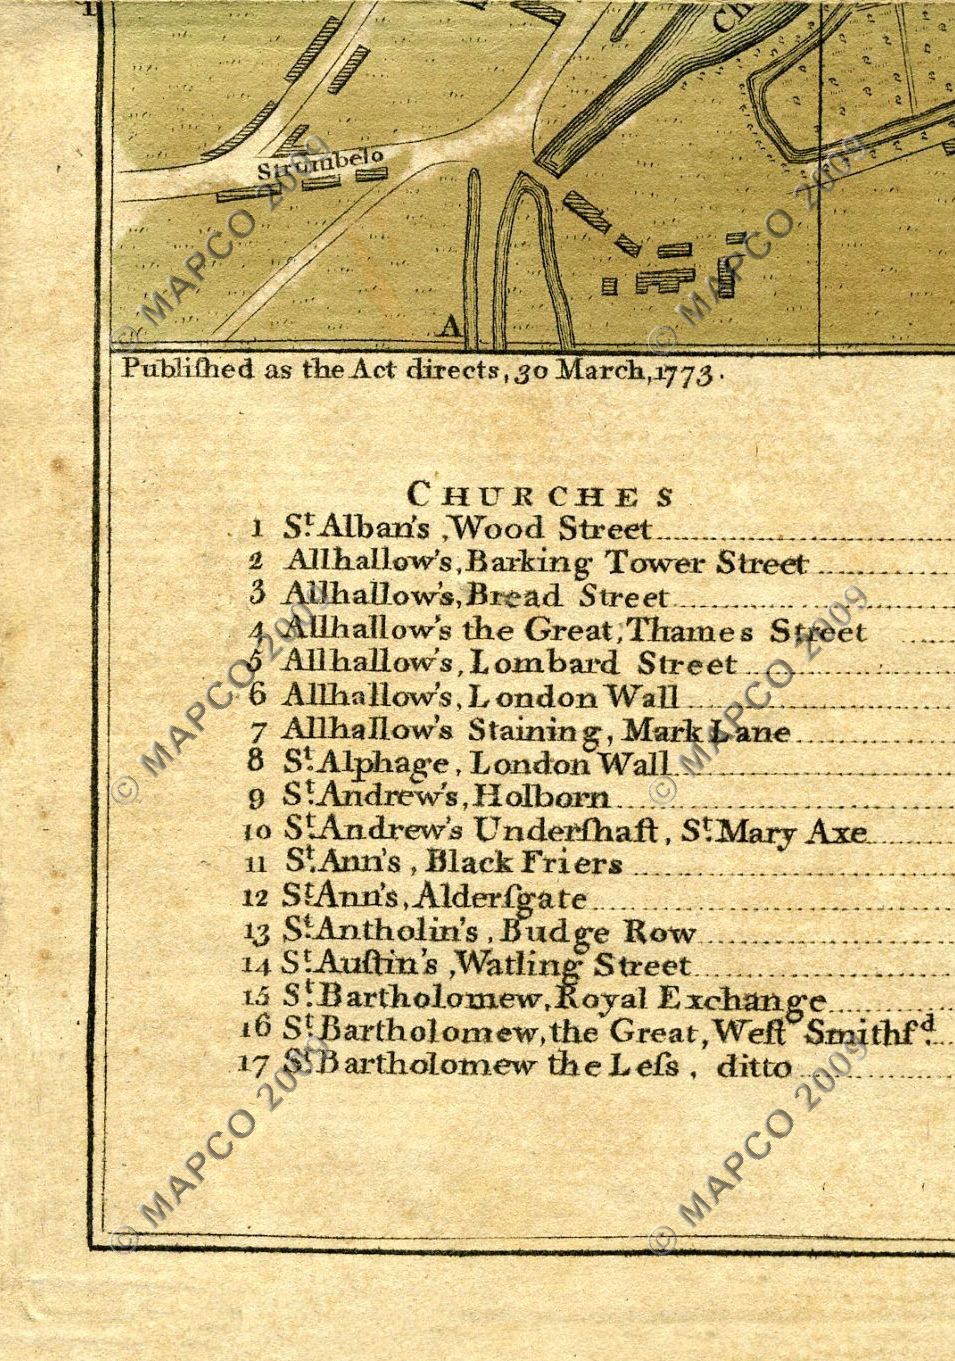 1
Ch
Strumbelo
A
Publiſhed as the Act directs, 30 March, 1773.
CHURCHES
1 St. Alban's, Wood Street
2 Allhallow's, Barking Tower Street
3 Allhallow's, Bread Street
4 Allhallow's the Great, Thames Street
5 Allhallow's, Lombard Street
6 Allhallow's, London Wall
7 Allhallow's Staining, Mark Lane
8 St. Alphage, London Wall
9 St. Andrew's, Holborn
10 St. Andrew's Underſhaft, St. Mary Axe
11 St. Ann's, Black Friers
12 St. Ann's, Alderſgate
13 St. Antholin's, Budge Row
14 St. Auſtin's, Watling Street
15 St. Bartholomew, Royal Exchange
16 St. Bartholomew, the Great, Weſt Smithfd.
17 St. Bartholomew the Leſs, ditto
© MAPCO 2009
© MAPCO 2009
© MAPCO 2009
© MAPCO 2009
© MAPCO 2009
© MAPCO 2009